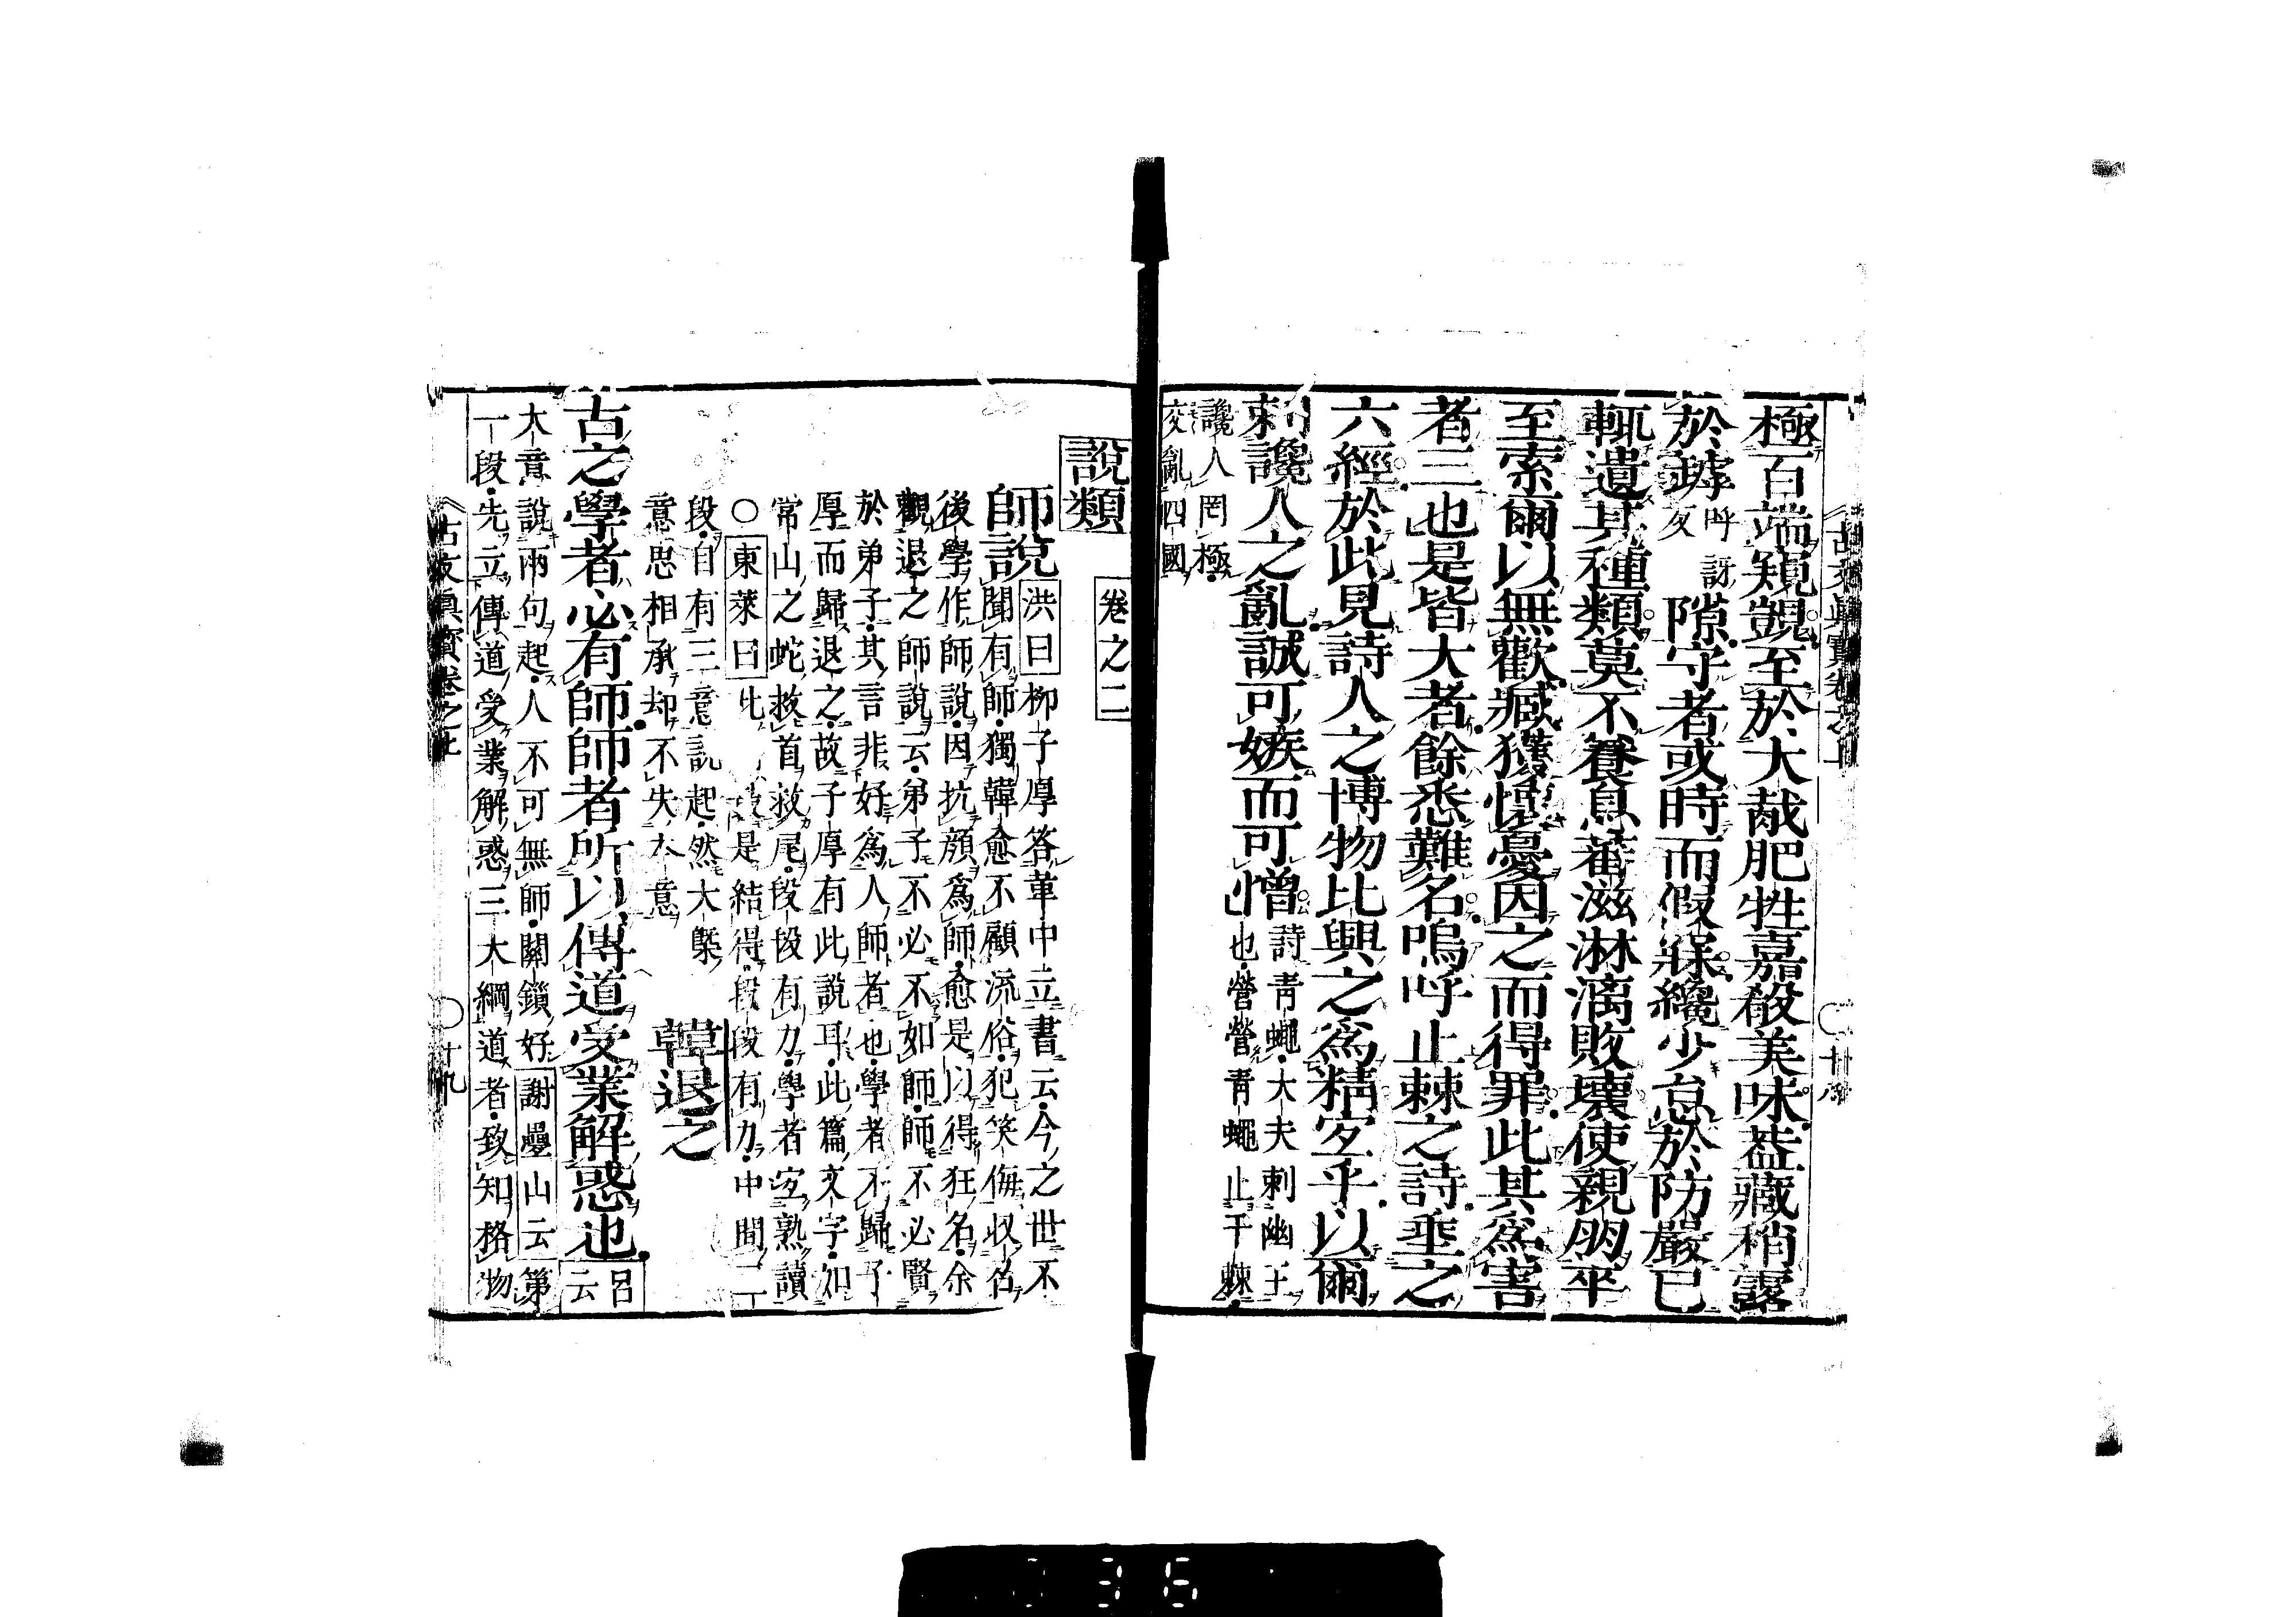 極百端窺覬至於大胾肥牲嘉殽美味葢藏稍露
於罅呼訝反隙守者或時而假寐纔少怠於防嚴已
輒遺其種類莫不養息蕃滋淋漓敗壞使親朋卒
至索爾以無歡臧獲懷憂因之而得罪此其爲害
者三也是皆大者餘悉難名嗚呼止棘之詩垂之
六經於此見詩人之博物比興之爲精宐乎以爾
刺讒人之亂誠可嫉而可憎詩青蠅大夫刺幽王
也營營青蠅止于棘
讒人罔極
交亂四國
說類
卷之二
師說洪曰柳子厚答韋中立書云今之世不
聞有師獨韓愈不顧流俗犯笑侮收召
後學作師說因抗顔爲師愈是以得狂名余
觀退之師說云弟子不必不如師師不必賢
於弟子其言非好爲人師者也學者不歸子
厚而歸退之故子厚有此說耳此篇文字如
常山之蛇救首救尾段段有力學者宐熟讀
○東萊曰此是結得段段有力中間二
段自有三意說起然大槩
意思相承却不失大意
韓退之
古之學者必有師師者所以傳道受業解惑也呂云
大意說兩句起人不可無師關鎖好謝疊山云第
一段先立傳道受業解惑三大綱道者致知格物
古文眞寶卷之上
○十九